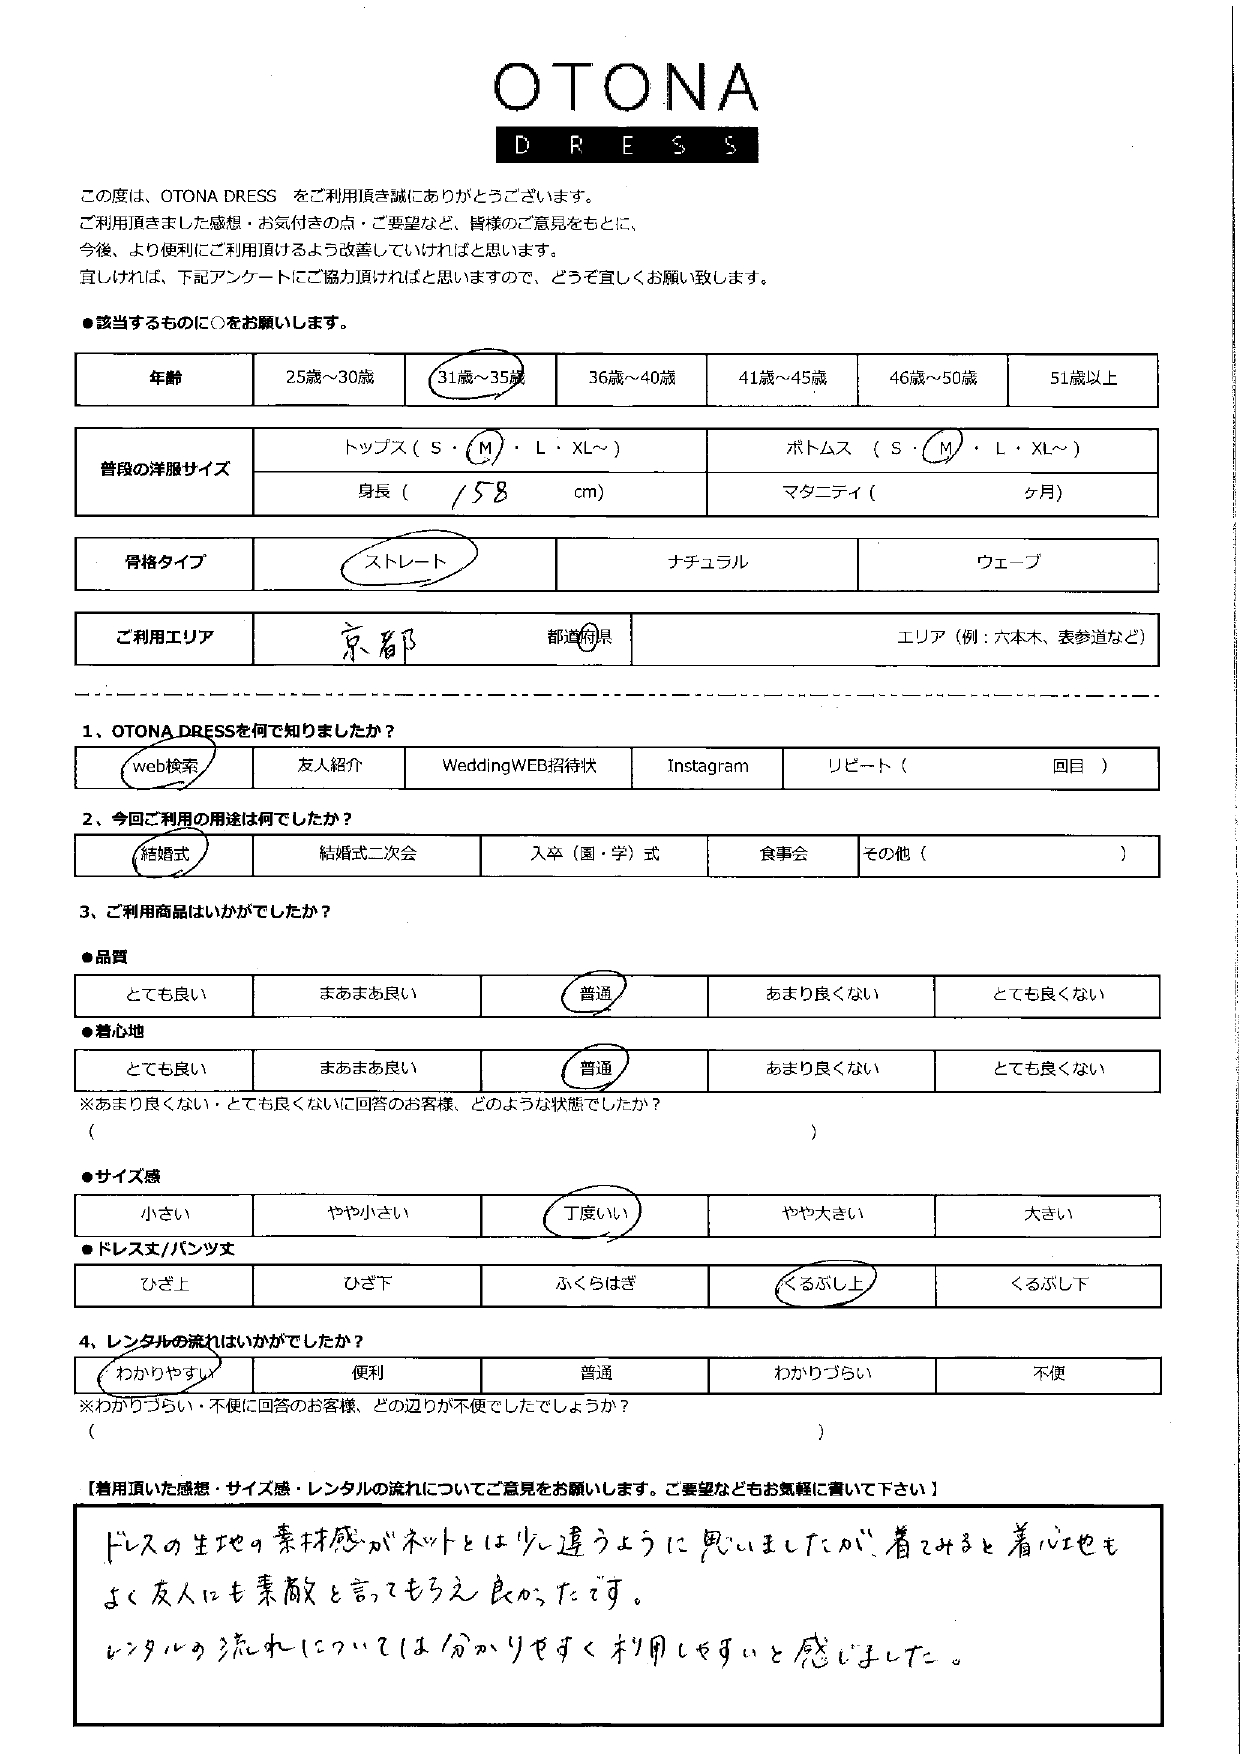 OTONA
DRESS
この度は、OTONA DRESS　をご利用頂き誠にありがとうございます。
ご利用頂きました感想・お気付きの点・ご要望など、皆様のご意見をもとに、
今後、より便利にご利用頂けるよう改善していければと思います。
宜しければ、下記アンケートにご協力頂ければと思いますので、どうぞ宜しくお願い致します。
●該当するものに○をお願いします。
年齢 25歳～30歳 31歳～35歳 36歳～40歳 41歳～45歳 46歳～50歳 51歳以上
普段の洋服サイズ トップス（ S ・ M ・ L ・ XL～ ） ボトムス （ S ・ M ・ L ・ XL～ ）
身長（ 158 cm） マタニティ（ ヶ月）
骨格タイプ ストレート ナチュラル ウェーブ
ご利用エリア 京都 都道府県 エリア（例：六本木、表参道など）
1、OTONA DRESSを何で知りましたか？
web検索 友人紹介 WeddingWEB招待状 Instagram リピート（ 回目 ）
2、今回ご利用の用途は何でしたか？
結婚式 結婚式二次会 入卒（園・学）式 食事会 その他（ ）
3、ご利用商品はいかがでしたか？
●品質
とても良い まあまあ良い 普通 あまり良くない とても良くない
●着心地
とても良い まあまあ良い 普通 あまり良くない とても良くない
※あまり良くない・とても良くないに回答のお客様、どのような状態でしたか？
（ ）
●サイズ感
小さい やや小さい 丁度いい やや大きい 大きい
●ドレス丈/パンツ丈
ひざ上 ひざ下 ふくらはぎ くるぶし上 くるぶし下
4、レンタルの流れはいかがでしたか？
わかりやすい 便利 普通 わかりづらい 不便
※わかりづらい・不便に回答のお客様、どの辺りが不便でしたでしょうか？
（ ）
【着用頂いた感想・サイズ感・レンタルの流れについてご意見をお願いします。ご要望などもお気軽に書いて下さい】
ドレスの生地の素材感がネットとは少し違うように思いましたが、着てみると着心地も
よく友人にも素敵と言ってもらえ良かったです。
レンタルの流れについては分かりやすく利用しやすいと感じました。